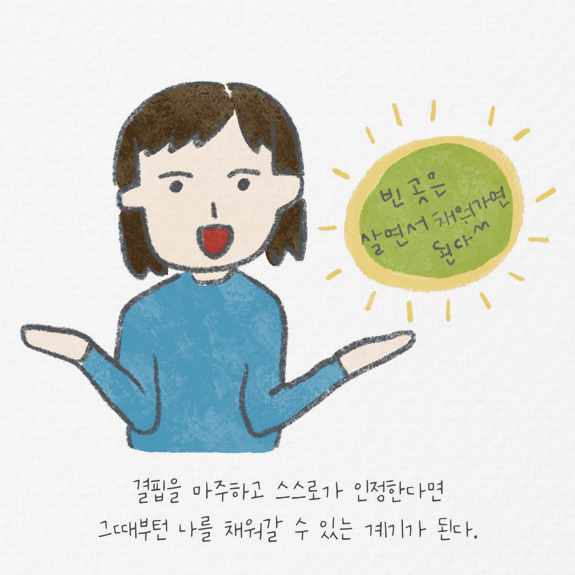 빈 곳은
살면서 채워가면
된다~
결핍을 마주하고 스스로가 인정한다면
그때부턴 나를 채워갈 수 있는 계기가 된다.